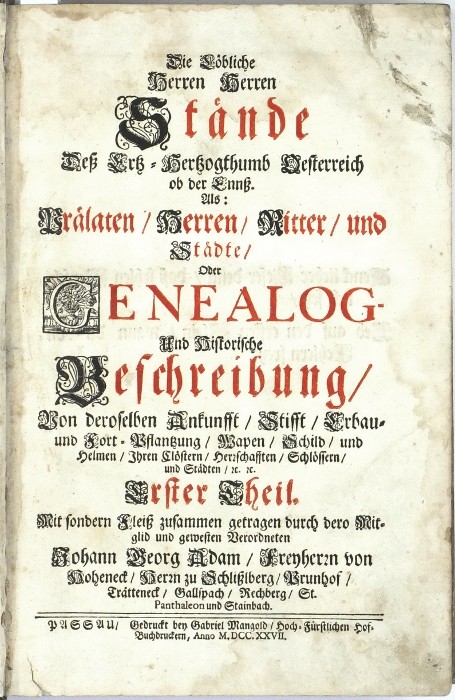 Die Löbliche
Herren Herren
Stände
Deß Ertz-Hertzogthumb Oesterreich
ob der Ennß.
Als:
Prälaten / Herren / Ritter / und
Städte /
Oder
GENEALOG-
Und Historische
Beschreibung /
Von deroselben Ankunfft / Stifft / Erbau-
und Fort-Pflantzung / Wapen / Schild / und
Helmen / Ihren Clöstern / Herrschafften / Schlössern /
und Städten / ꝛc. ꝛc.
Erster Theil.
Mit sondern Fleiß zusammen getragen durch dero Mit-
glid und gewesten Verordneten
Johann Georg Adam / Freyherrn von
Hoheneck / Herrn zu Schlißlberg / Prunhof /
Trätteneck / Gallspach / Rechberg / St.
Panthaleon und Stainbach.
PASSAU / Gedruckt bey Gabriel Mangold / Hoch-Fürstlichen Hof-
Buchdruckern, Anno M.DCC.XXVII.